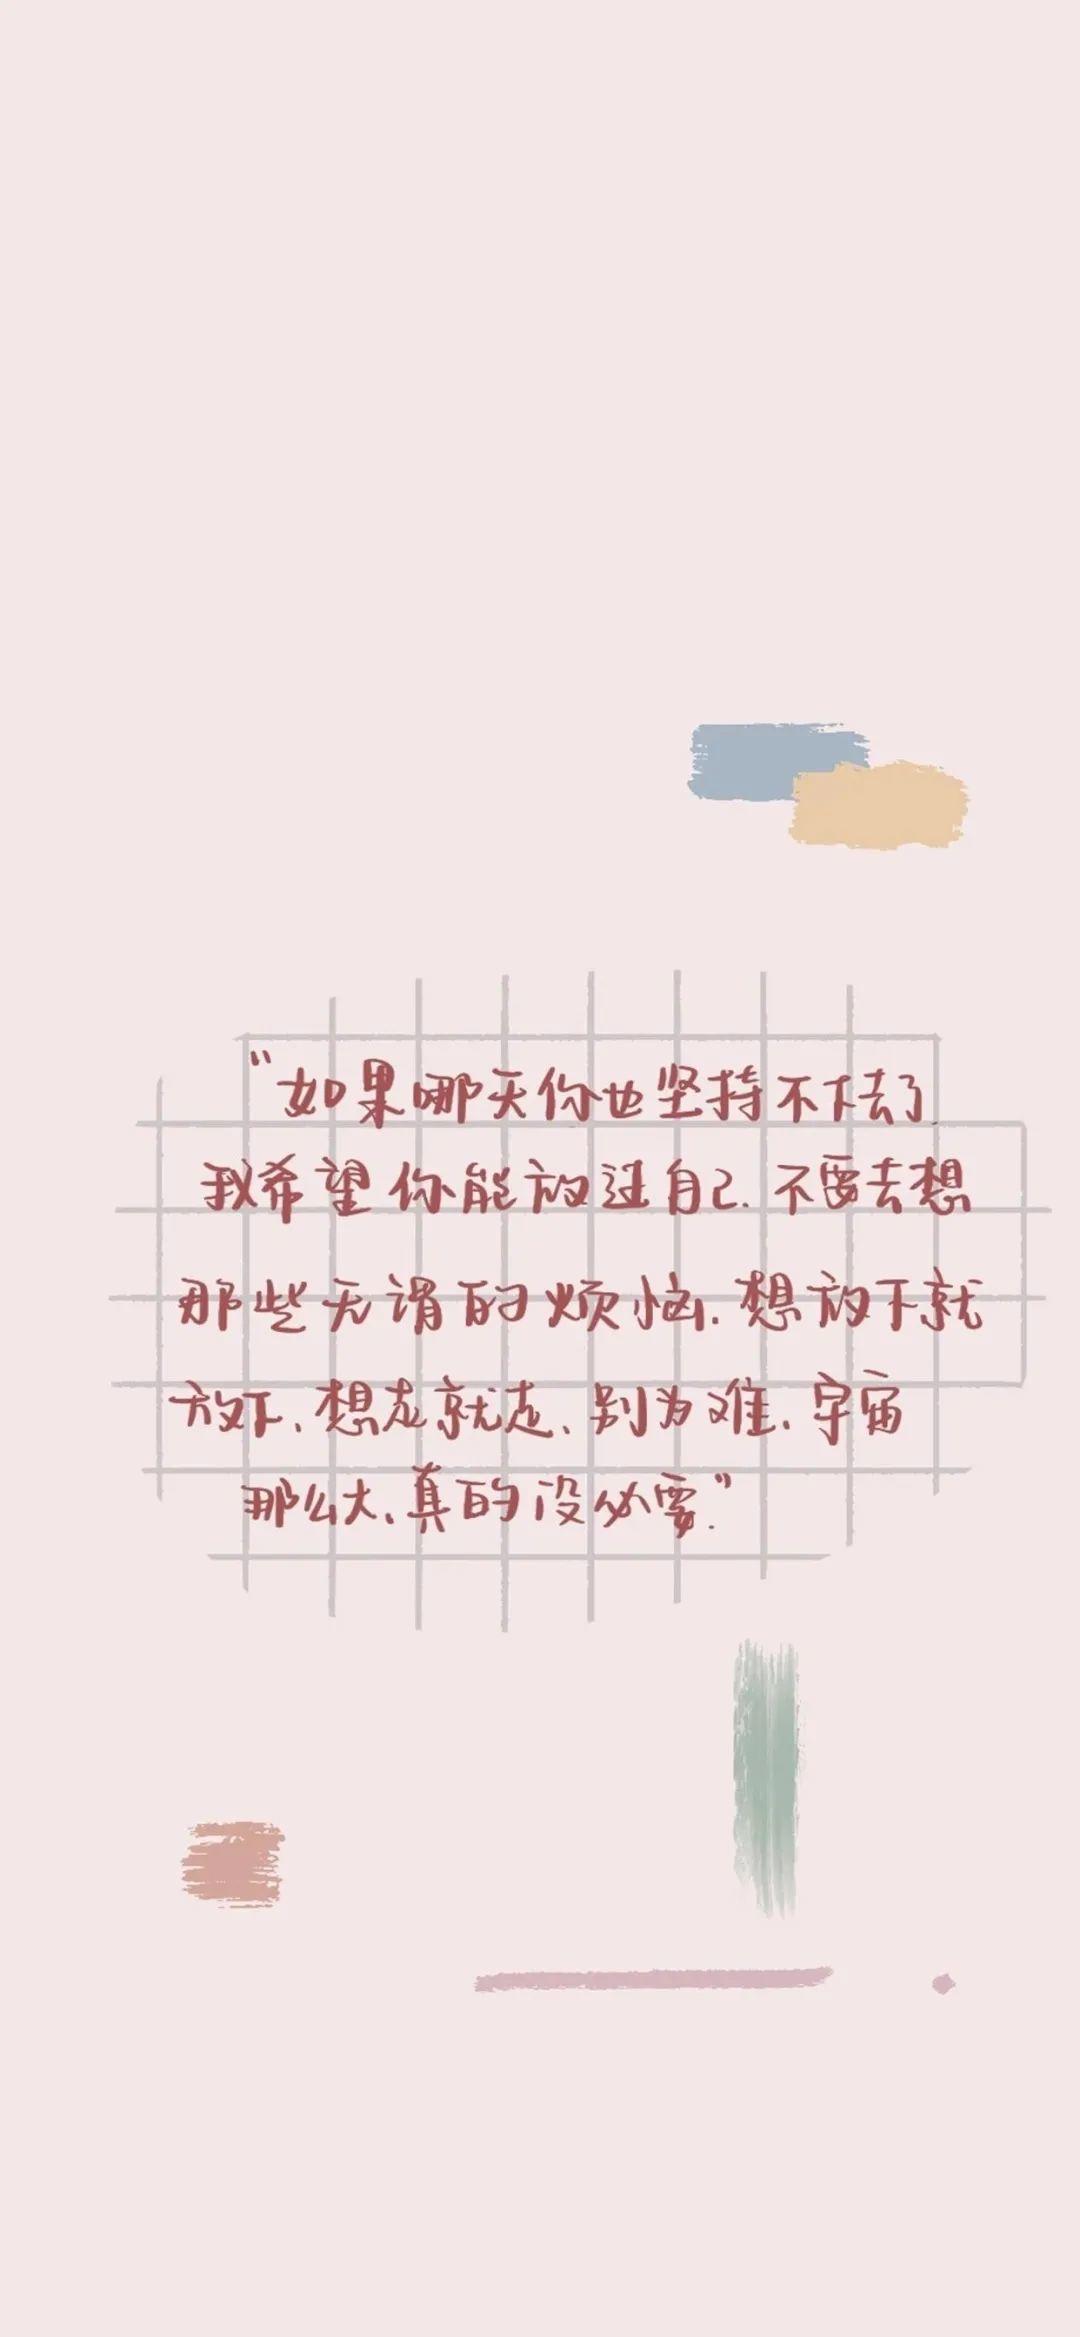 “如果哪天你也坚持不下去了
我希望你能放过自己.不要去想
那些无谓的烦恼.想放下就
放下、想走就走、别为难.宇宙
那么大、真的没必要.”